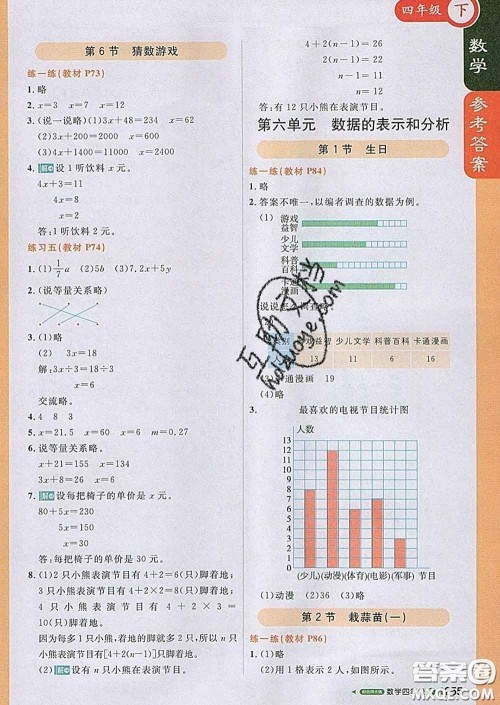 四年级 下
数学
参考答案
第6节 猜数游戏
练一练(教材 P73)
1. 略
2. x=3 x=7 x=12
3. (说一说略)(1)3x+24=48 x=8
(2)3x+200=2000 x=600
(3)4x+1400=11000 x=2400
4. 设1听饮料x元。
4x+3=11
4x=8
x=2
答:1听饮料2元。
练习五(教材 P74)
1. (1)1/7 a (2)5b (3)7.2x+5y
2. (说等量关系略)
3. (1)略
(2) 3x=18
解:3x÷3=18÷3
x=6
交流略。
4. 4 8 3
5. x=21 x=15 x=6 m=0.27
6. 说等量关系略。
x+21=155 3.3x=330
x=134 x=100
7. 设每把椅子的单价是x元。
80+5x=230
5x=150
x=30
答:每把椅子的单价是30元。
8. (1)2只小熊表演节目有4+2=6(只)脚着地;
3只小熊表演节目有4+2×3=
10(只)脚着地。
因为每多1只小熊,着地的脚就多2只,所以n只
小熊表演节目有[4+2(n-1)]只脚着地。
(2)设有n只小熊在表演节目。
4+2(n-1)=26
2(n-1)=22
n-1=11
n=12
答:有12只小熊在表演节目。
第六单元 数据的表示和分析
第1节 生日
练一练(教材 P84)
1. 略
2. 答案不唯一,以编者调查的数据为例。
(1) 游戏
益智
少儿
文学
科普
百科
卡通
漫画
益智 少儿文学 科普百科 卡通漫画
13 11 6 16
(3)卡通漫画 19
(4)略
3. 最喜欢的电视节目统计图
人数
13
12
11
10
9
8
7
6
5
4
3
2
1
0
(少儿)(动漫)(体育)(电影)(军事) 节目
(1)动漫 (2)36 (3)略
第2节 栽蒜苗(一)
练一练(教材 P86)
1. 略
2. (1)用1格表示2人,画图略。
互助文档
huzuoye.com
数学四年
答案圈